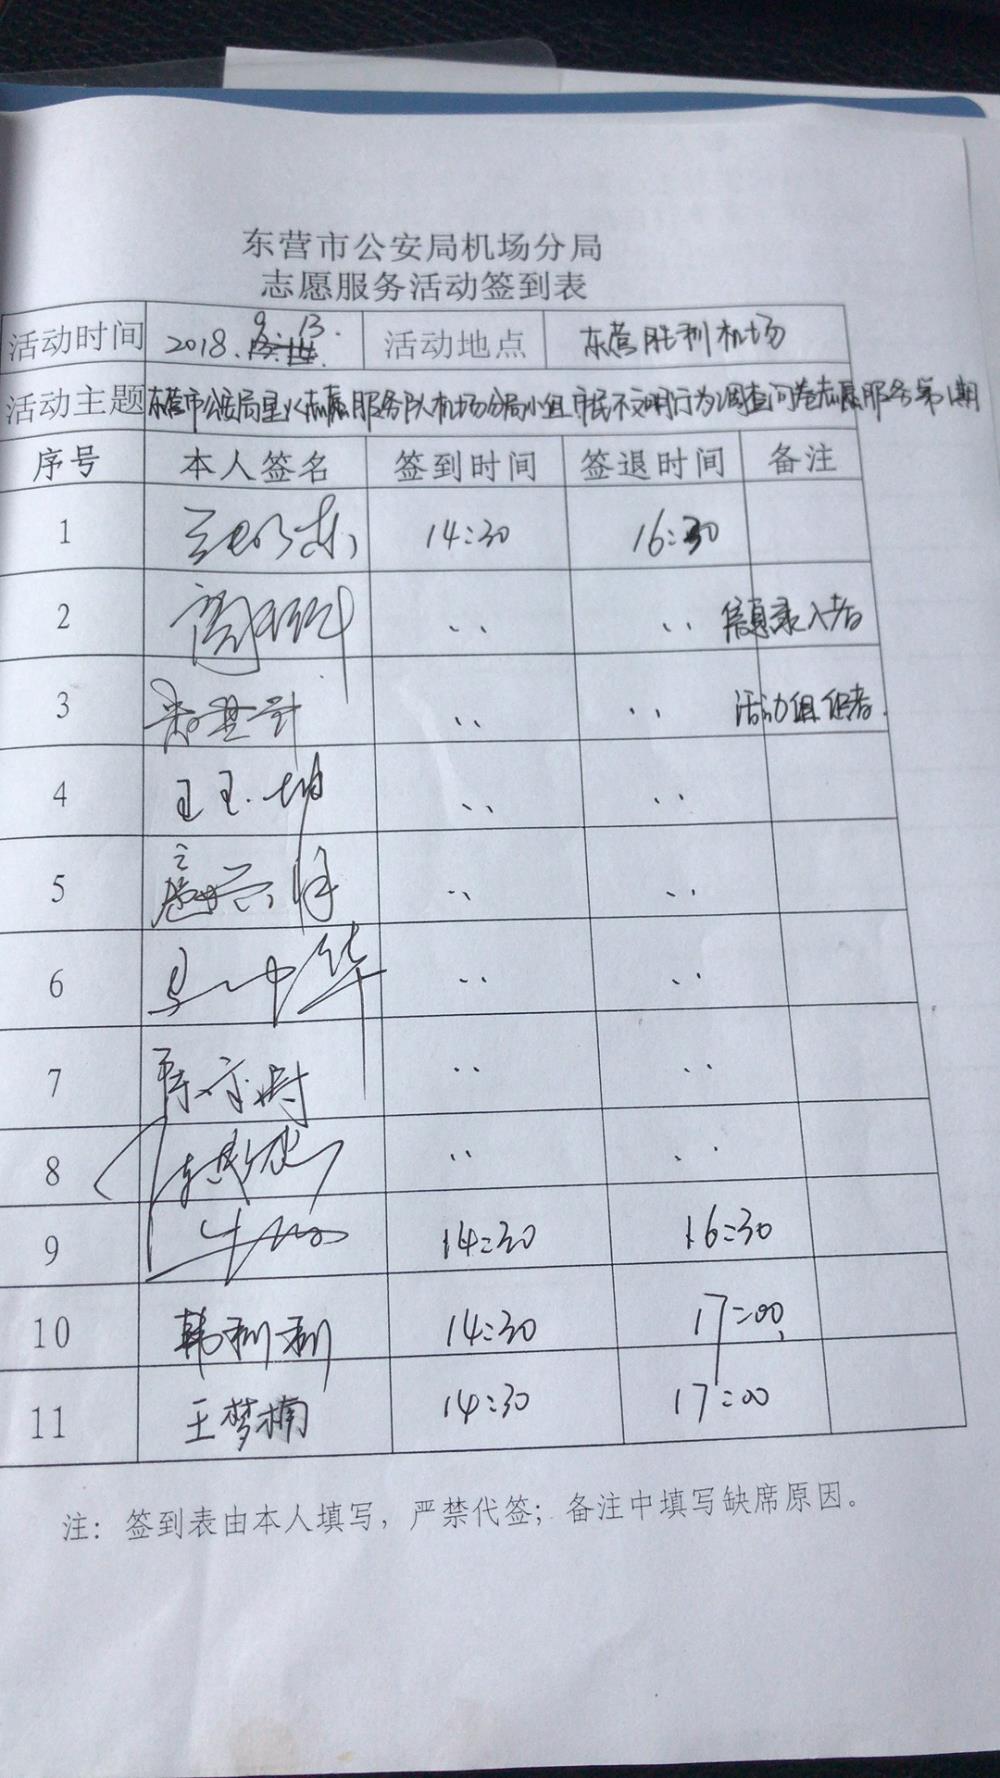 东营市公安局机场分局
志愿服务活动签到表
活动时间 2018.9.13. 活动地点 东营胜利机场
活动主题 东营市公安局星火志愿服务队机场分局小组市民不文明行为调查问卷志愿服务第1期
序号 本人签名 签到时间 签退时间 备注
1 14:30 16:30
2 〃 〃 信息录入者
3 〃 〃 活动组织者.
4 王玉坤 〃 〃
5 〃 〃
6 马中华 〃 〃
7 〃 〃
8 〃 〃
9 14:30 16:30
10 韩利利 14:30 17:00
11 王梦楠 14:30 17:00
注：签到表由本人填写，严禁代签；备注中填写缺席原因。